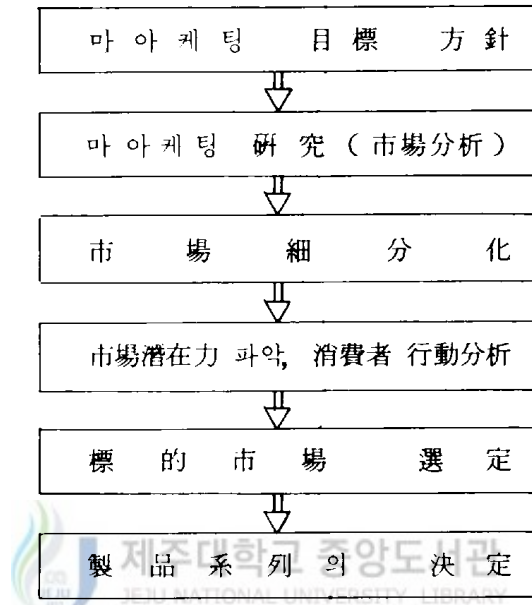 마아케팅 目標 方針
마아케팅 硏究 (市場分析)
市場細分化
市場潛在力 파악, 消費者 行動分析
標的市場 選定
製品系列의 決定
제주대학교 중앙도서관
JEJU NATIONAL UNIVERSITY LIBRARY